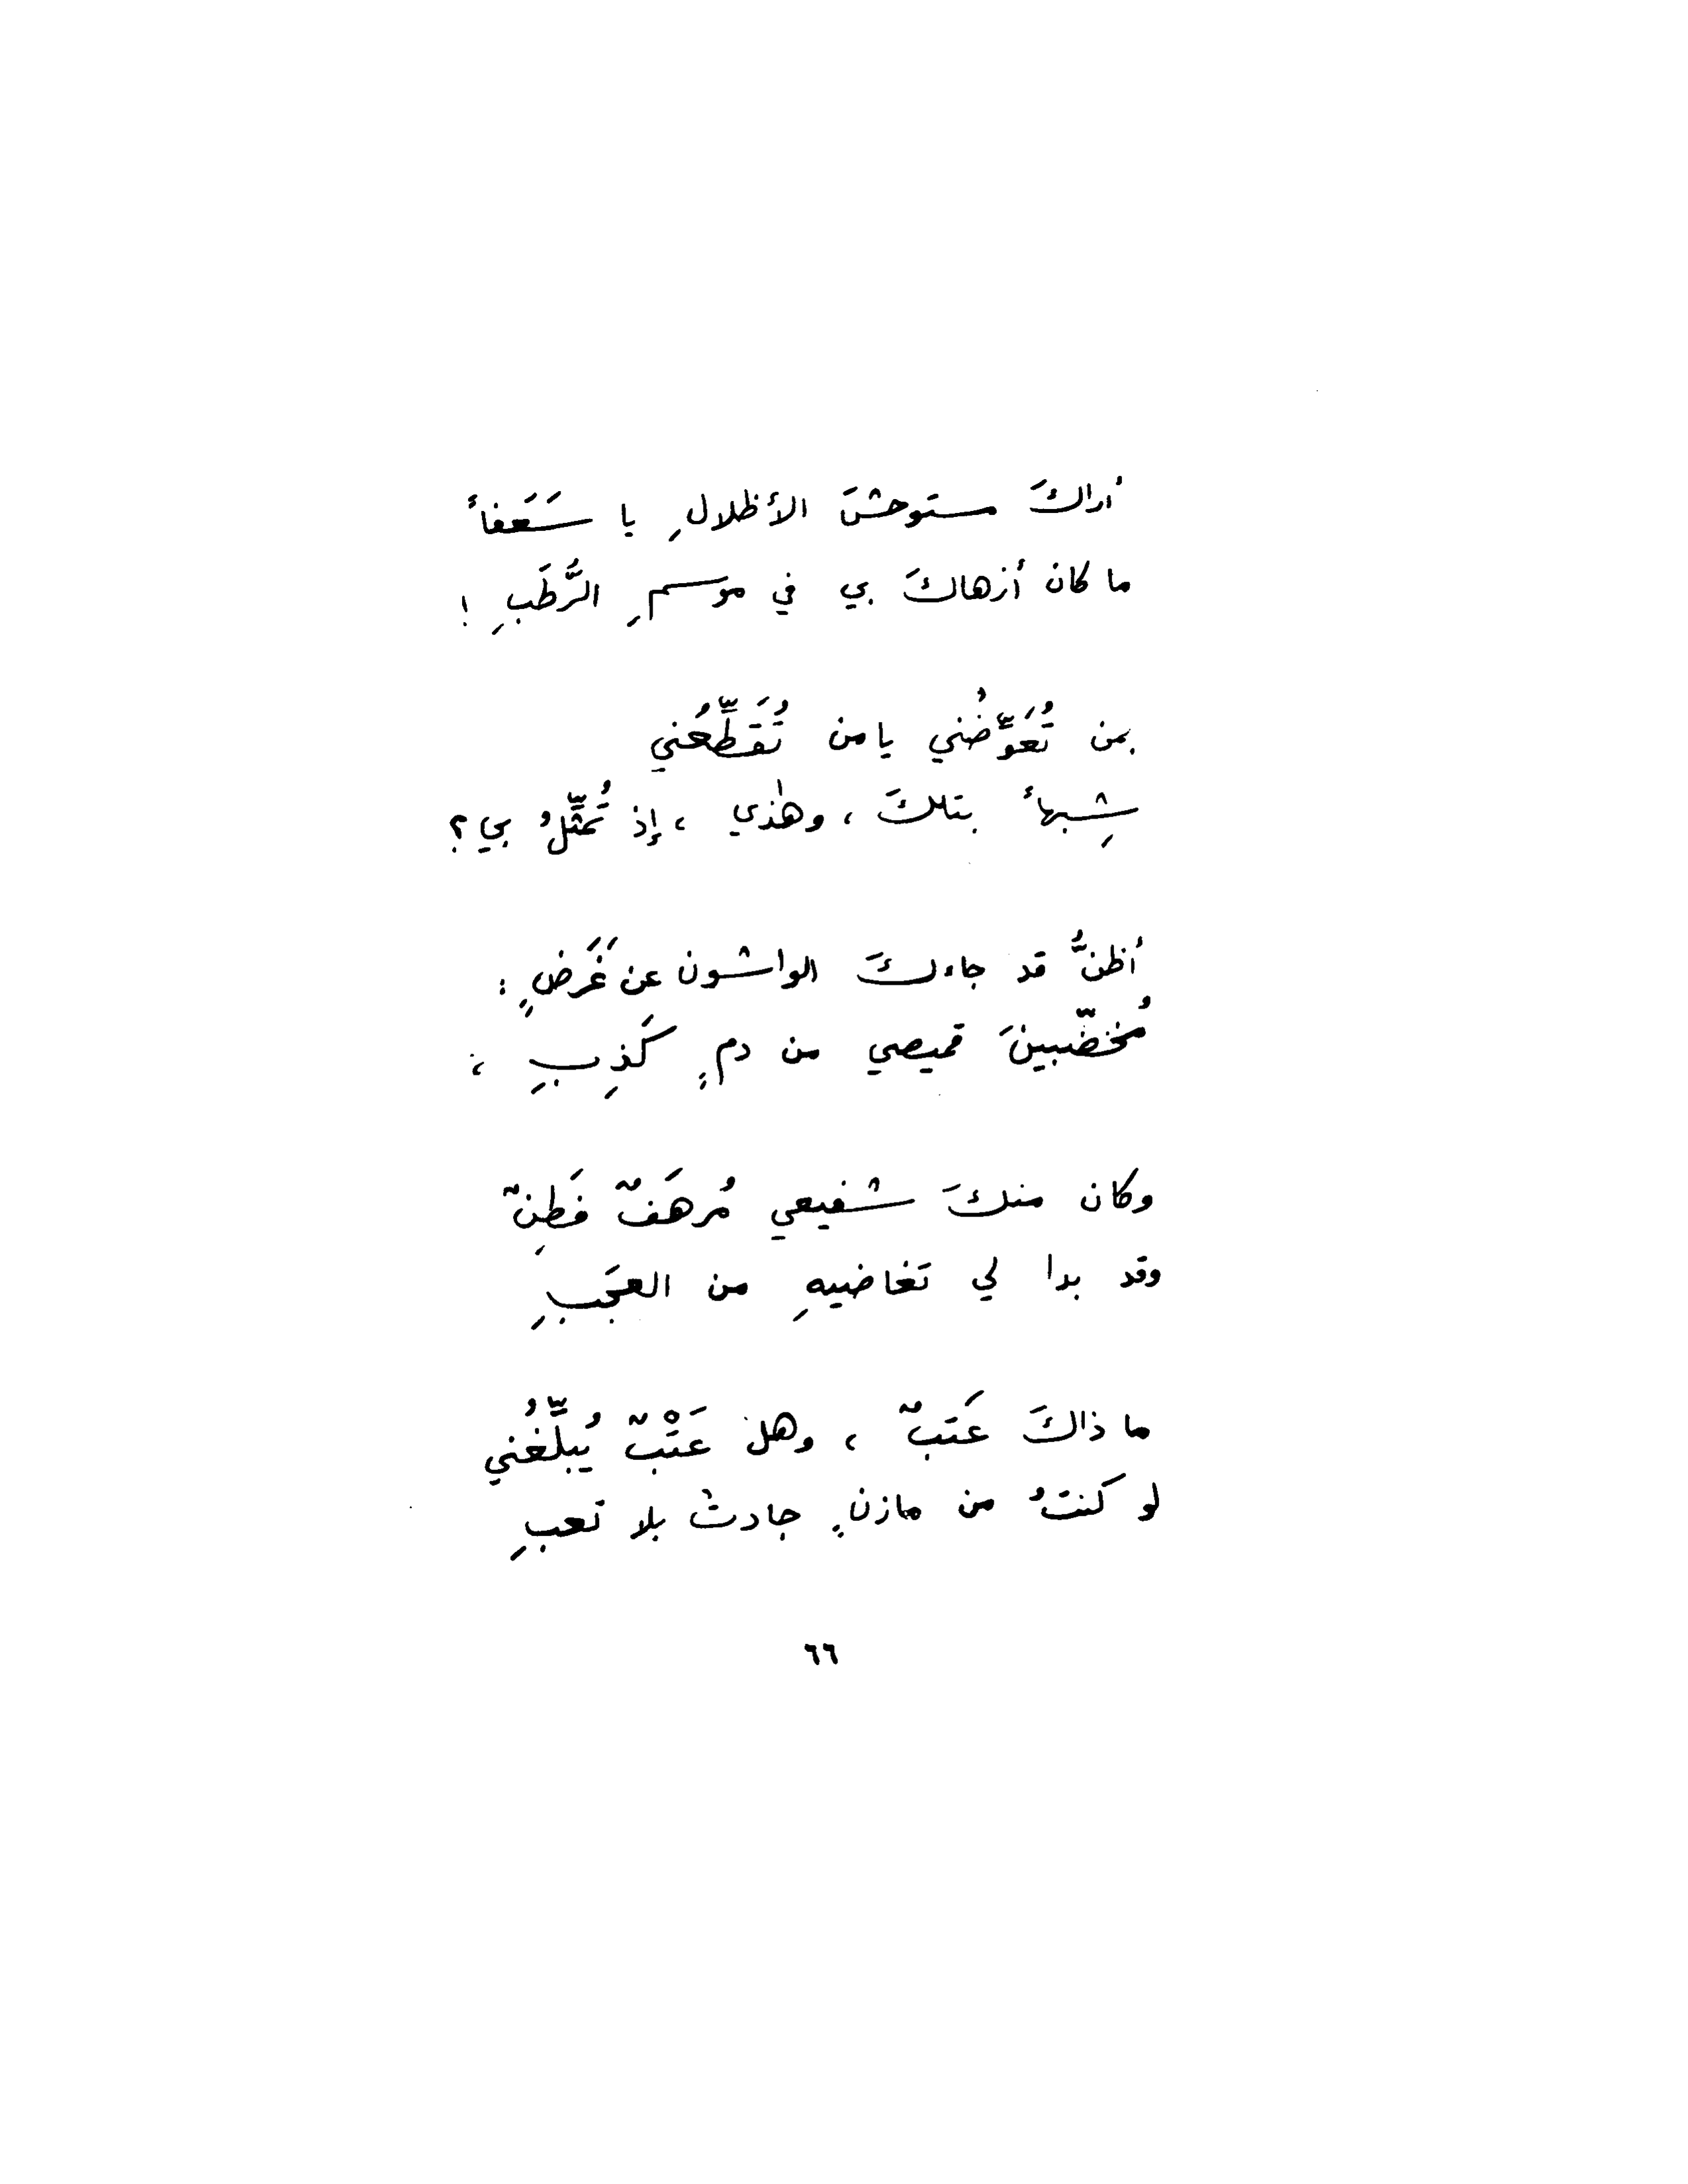 أراكَ مستوحشَ الأظلالِ يا سَعَفاً
ما كان أزهاكَ بي في موسمِ الرُّطَبِ !
بمن تُعَوِّضُني يا من تُقَطِّعُني
شِبهاً بتلكَ ، وهٰذي ، إذ تُمَثِّلُ بي ؟
أظنُّ قد جاءكَ الواشون عن غَرَضٍ :
مُخضّبينَ قميصي من دمٍ كَذِبِ ؛
وكان منكَ شفيعي مُرهَفٌ فَطِنٌ
وقد بدا لي تغاضيهِ من العجَبِ
ما ذاكَ عَتَبٌ ، وهل عَتْبٌ يُبلِّغُني
لو كنتُ من مازنٍ جادت بلا تعبِ
٦٦